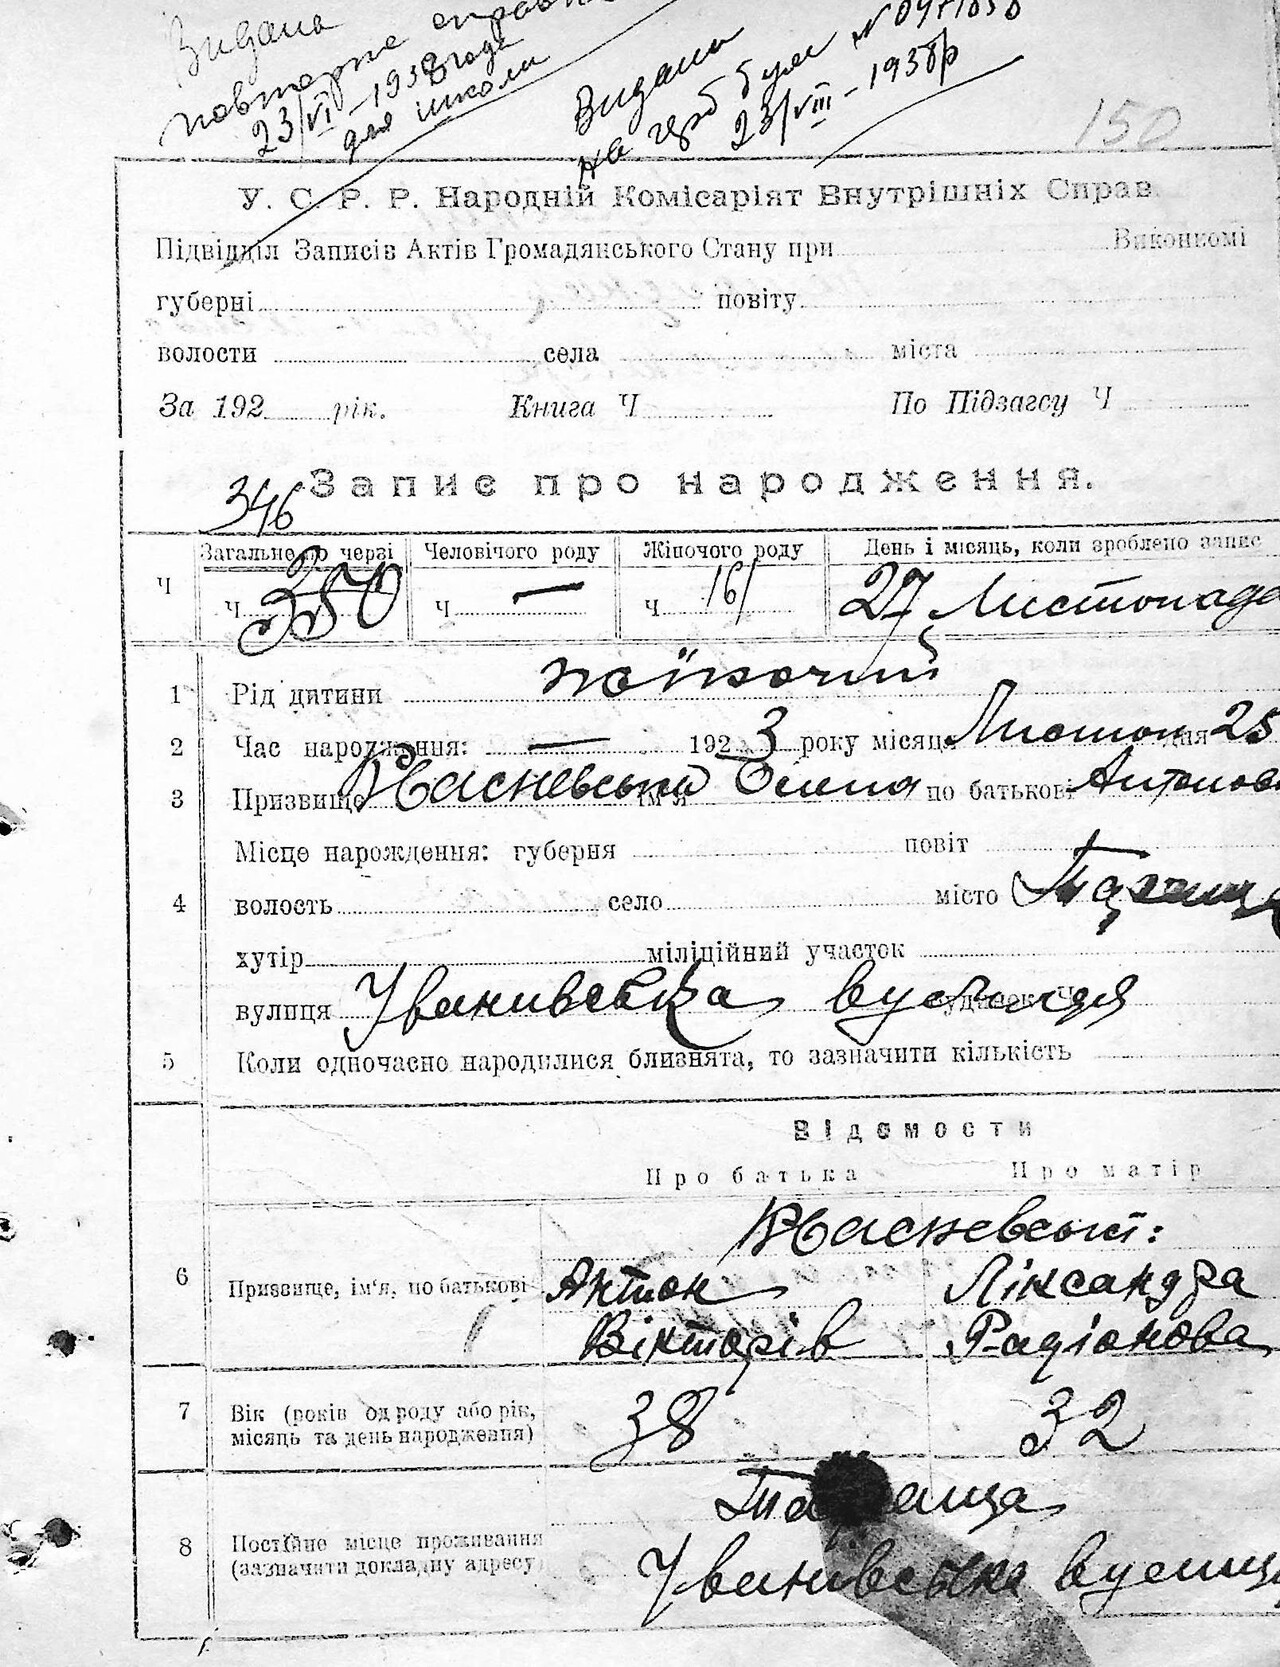 Видана
повторно справка
23/VI-1938 года
для школи
Видана
на герб бум № 0471030
23/VIII-1938р
150
У. С. Р. Р. Народній Комісаріят Внутрішніх Справ.
Підвідділ Записів Актів Громадянського Стану при Виконкомі
губерні повіту
волости села міста
За 192 рік. Книга Ч По Підзагсу Ч
Запис про народження.
346
Ч Загальне по черзі Человічого роду Жіночого роду День і місяць, коли зроблено запис
Ч 350 Ч — Ч 161 27 Листопада
1 Рід дитини жіночий
2 Час народження: — 1923 року місяця Листоп дня 25
3 Призвище Квасневська ім'я Олена по батькові Антонов
Місце нарождення: губерня повіт
4 волость село місто Тараща
хутір міліційний участок
вулиця Іванивська вулиця будинок Ч
5 Коли одночасно народилися близнята, то зазначити кількість
Відомости
Про батька Про матір
Квасневські:
6 Призвище, ім'я, по батькові Антон Ліксандра
Вікторів Радіонова
7 Вік (років од роду або рік, 38 32
місяць та день народження)
Тараща
8 Постійне місце проживання
(зазначити докладну адресу) Іванивська вулиця